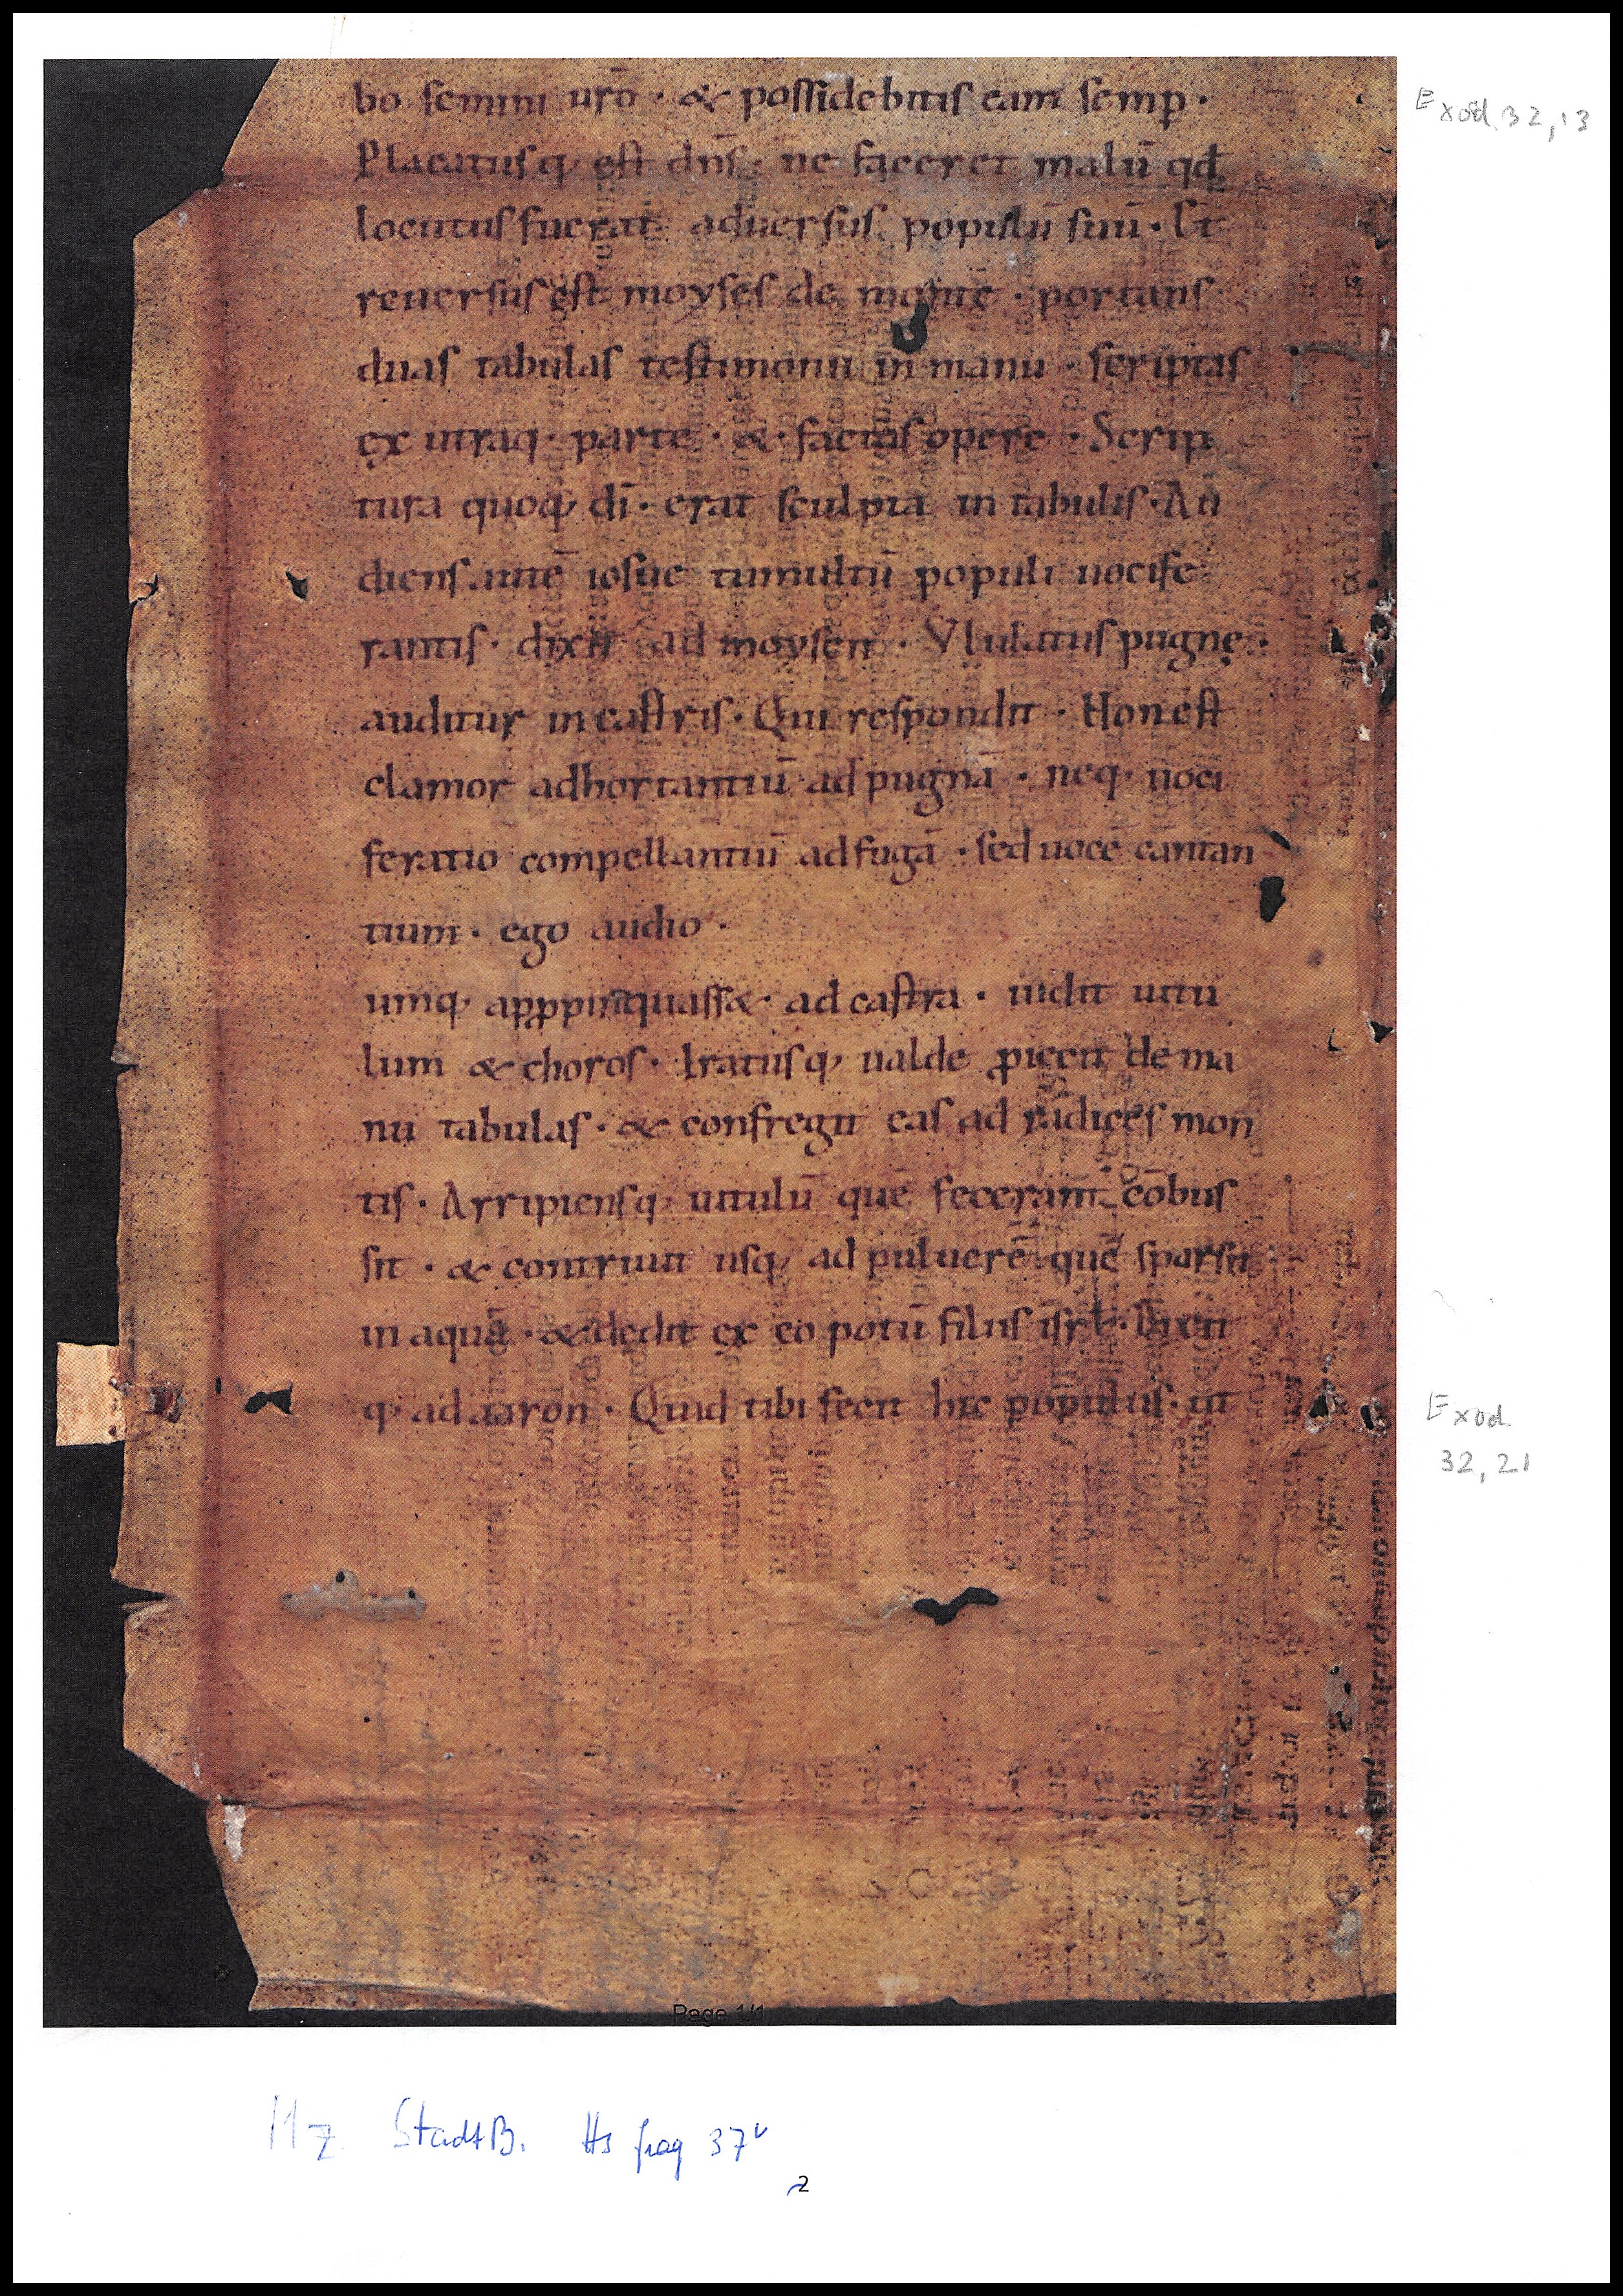 bo semini ur̄o · & possidebitis eam semꝑ ·
Placatusq; est dn̄s · ne faceret malū qđ
locutus fuerat aduersus populū suū · Et
reuersus est moyses de monte · portans
duas tabulas testimonii in manu · scriptas
ex utraq; parte · & factas opere · Scrip
tura quoq; dī · erat sculpta in tabulis · Au
diens autē iosue tumultū populi uocife
rantis · dixit ad moysen · Vlulatus pugnę ·
auditur in castris · Qui respondit · Non est
clamor adhortantiū ad pugnā · neq; uoci
feratio compellantiū ad fugā · sed uocē cantan
tium · ego audio ·
umq; apꝓpinquass& · ad castra · uidit uitu
lum & choros · Iratusq; ualde ꝓiecit de ma
nu tabulas · & confregit eas ad radices mon
tis · Arripiensq; uitulū quē fecerant cōbus
sit · & contriuit usq; ad puluerē quē sparsit
in aquā · & dedit ex eo potū filiis isrł · Dixit
q; ad aaron · Quid tibi fecit hic populus · ut
Exod. 32,13
Exod.
32,21
Page 1/1
Mz StadtB. Hs frag 37v
2